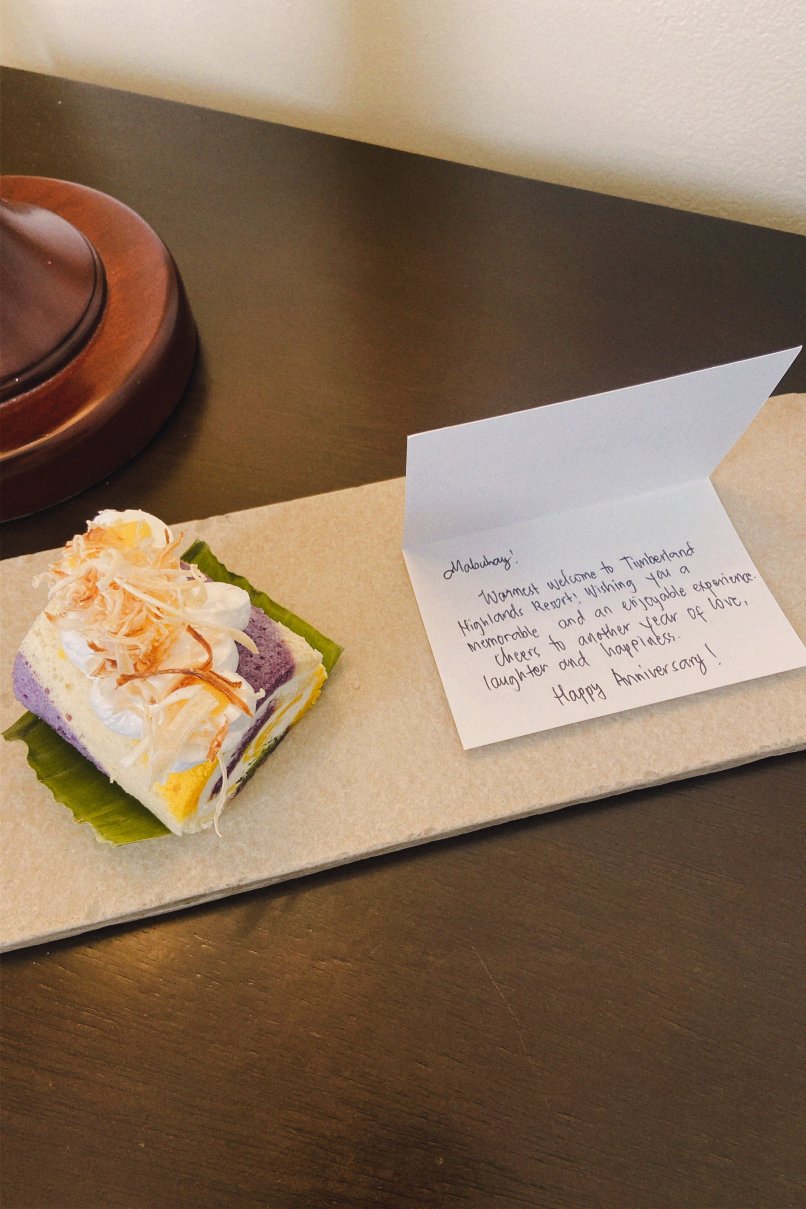 Mabuhay!
Warmest welcome to Timberland
Highlands Resort! Wishing you a
memorable and an enjoyable experience.
Cheers to another year of love,
laughter and happiness.
Happy Anniversary!